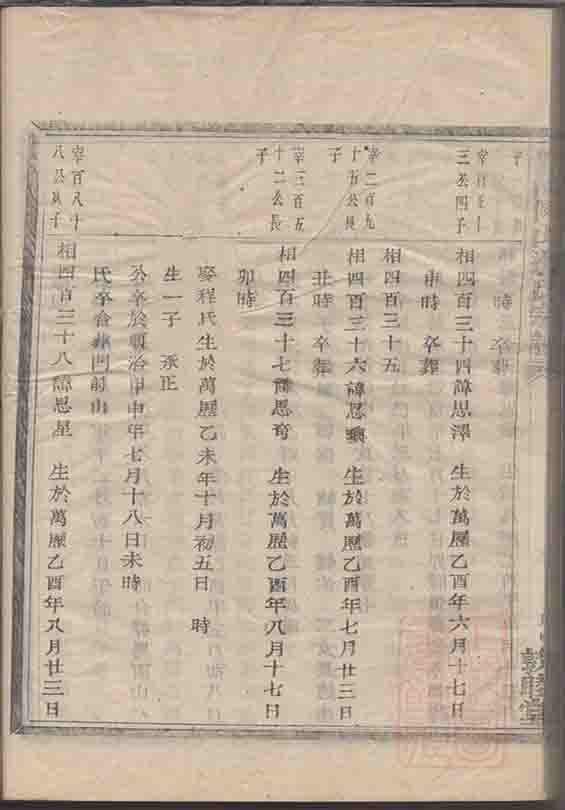 時 卒葬
宰百五十
三公四子
相四百三十四諱思澤 生於萬歷乙酉年六月十七日
申時 卒葬
相四百三十五
宰二百九
十五公長
子
相四百三十六諱思 生於萬歷乙酉年七月廿三日
丑時 卒葬
宰三百五
十二公長
子
相四百三十七諱思奇 生於萬歷乙酉年八月十七日
卯時
娶程氏生於萬歷乙未年十月初五日 時
生一子 永正
公卒於順治甲申年七月十八日未時
氏卒合葬門前山
宰百八十
八公長子
相四百三十八諱思星 生於萬歷乙酉年八月廿三日
睦堂